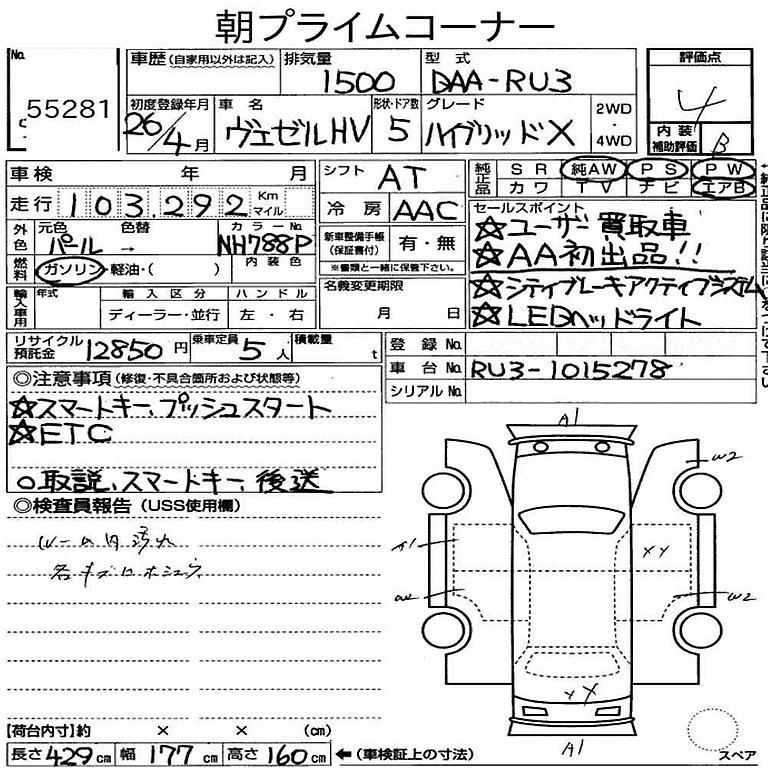 朝プライムコーナー
No. 55281
車歴(自家用以外は記入) 排気量 1500 型式 DAA-RU3
初度登録年月 26/4月 車名 ヴェゼルHV 形状・ドア数 5 グレード ハイブリッドX 2WD・4WD
評価点 4
内装補助評価 B
車検 年 月
走行 103,292 Km マイル
外色 元色 パール 色替 → カラーNo. NH788P
燃料 ガソリン・軽油・( ) 内装色
輸入車用 年式 輸入区分 ディーラー・並行 ハンドル 左・右
シフト AT
冷房 AAC
新車整備手帳(保証書付) 有・無
※書類と一緒に保管下さい。
名義変更期限 月 日
純正品 SR 純AW PS PW
カワ TV ナビ エアB
セールスポイント
☆ユーザー買取車
☆AA初出品!!
☆シティブレーキアクティブシステム
☆LEDヘッドライト
リサイクル預託金 12850円 乗車定員 5人 積載量 t
登録No.
車台No. RU3-1015278
シリアルNo.
◎注意事項(修復・不具合箇所および状態等)
☆スマートキー、プッシュスタート
☆ETC
○取説、スマートキー、後送
◎検査員報告(USS使用欄)
ルーム内汚れ
各キズ凹ホシュウ
A1
W2
A1
XX
W2
W2
XX
A1
スペア
【荷台内寸】約 × × (cm)
長さ429cm 幅177cm 高さ160cm ←(車検証上の寸法)